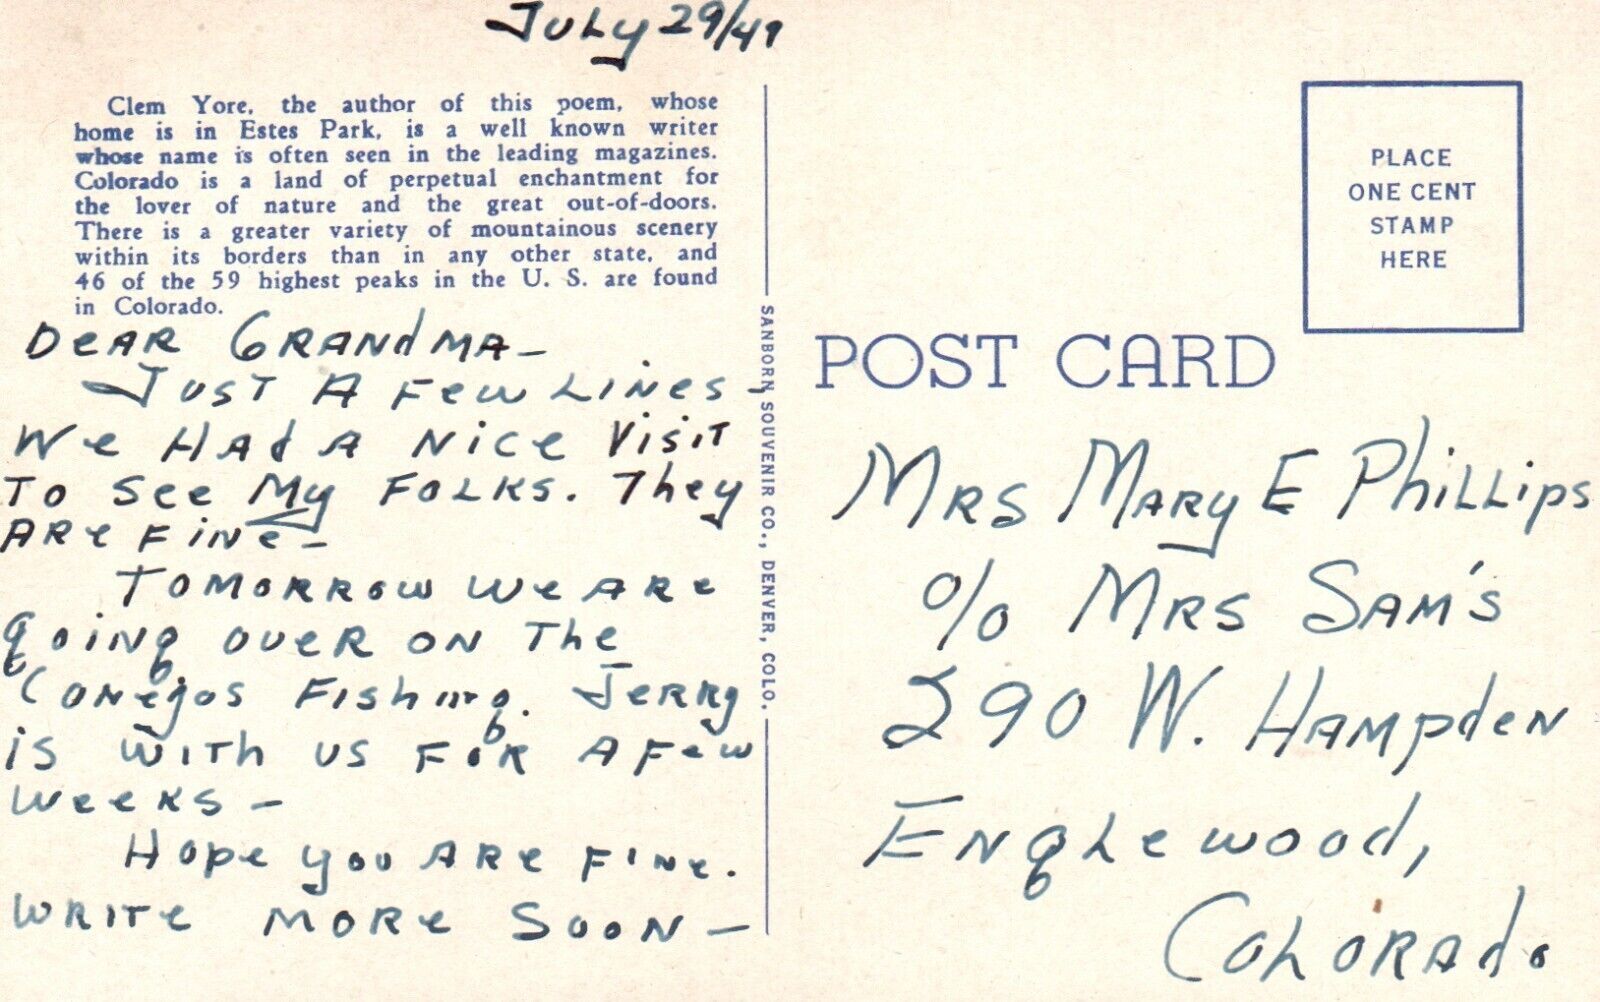 July 29/49
Clem Yore, the author of this poem, whose
home is in Estes Park, is a well known writer
whose name is often seen in the leading magazines.
Colorado is a land of perpetual enchantment for
the lover of nature and the great out-of-doors.
There is a greater variety of mountainous scenery
within its borders than in any other state, and
46 of the 59 highest peaks in the U. S. are found
in Colorado.
Dear Grandma—
Just a few lines—
We had a nice visit
to see My folks. They
are fine—
Tomorrow we are
going over on the
Conejos fishing. Jerry
is with us for a few
weeks—
Hope you are fine.
Write more soon—
SANBORN SOUVENIR CO., DENVER, COLO.
PLACE
ONE CENT
STAMP
HERE
POST CARD
Mrs Mary E Phillips
c/o Mrs Sam's
290 W. Hampden
Englewood,
Colorado.